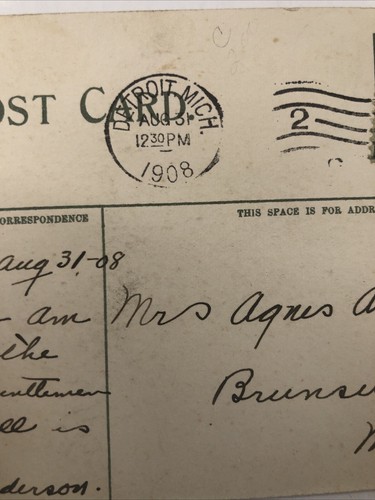 OST CARD
DETROIT, MICH.
AUG 31
12 30 PM
1908
2
ORRESPONDENCE
THIS SPACE IS FOR ADDR
Aug 31-08
am
the
entlemen
is
derson.
Mrs Agnes A
Brunsw